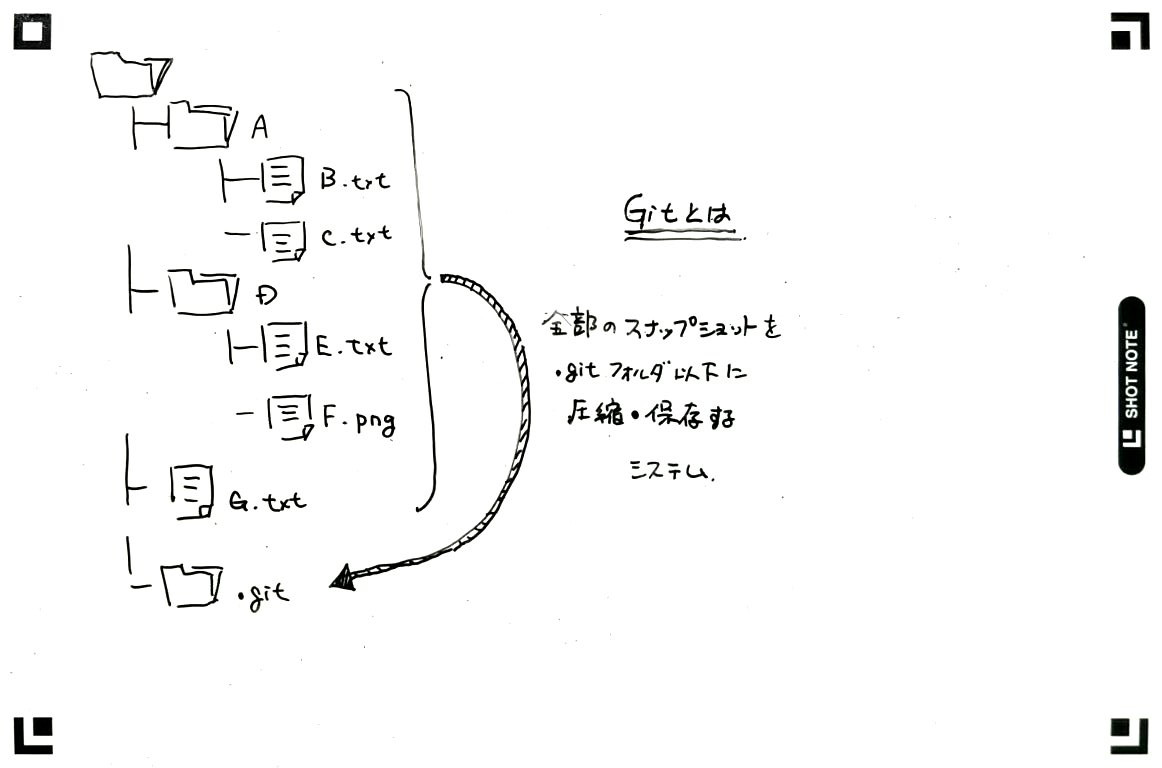 A
B.txt
C.txt
D
E.txt
F.png
G.txt
.git
Gitとは
全部のスナップショットを
.gitフォルダ以下に
圧縮・保存する
システム.
SHOT NOTE